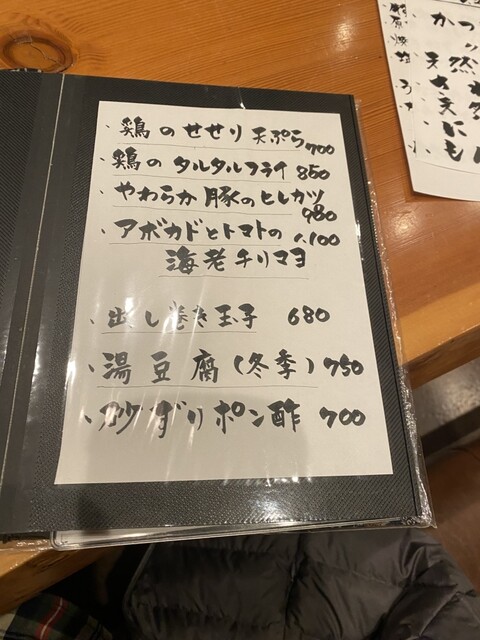 ・鶏のせせり天ぷら 700
・鶏のタルタルフライ 850
・やわらか豚のヒレカツ
980
・アボカドとトマトの 1,100
海老チリマヨ
、出し巻き玉子 680
、湯豆腐(冬季) 750
、砂ずりポン酢 700